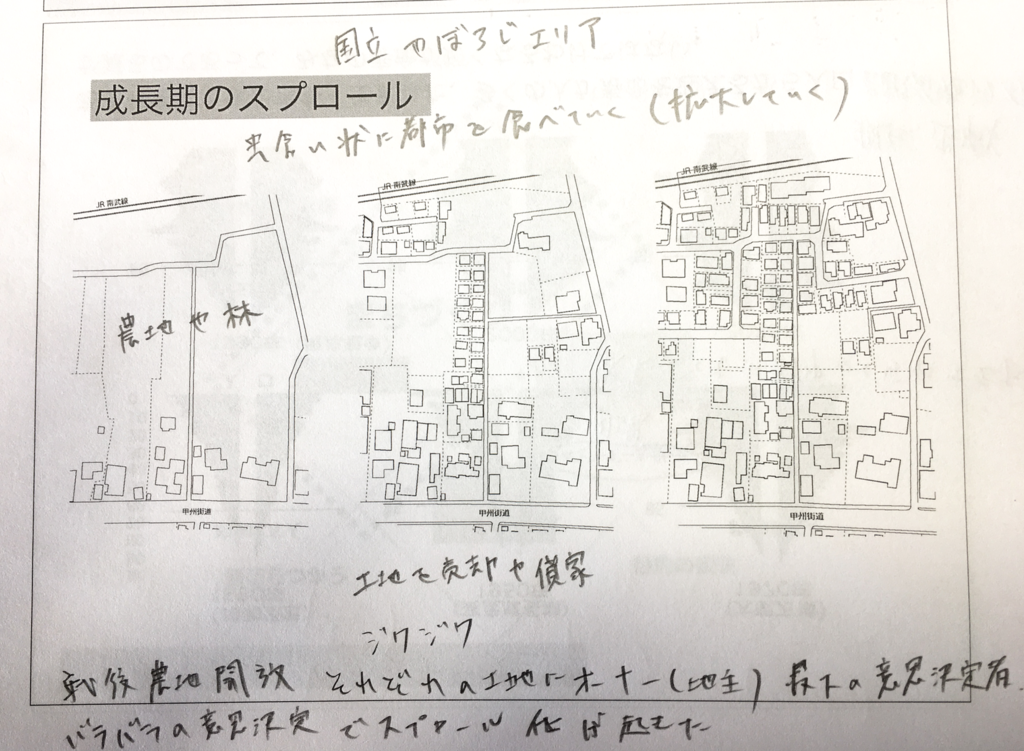 国立やぼろじエリア
成長期のスプロール
虫食い状に都市を食べていく（拡大していく）
JR 南武線
JR 南武線
JR 南武線
農地や林
甲州街道
甲州街道
甲州街道
土地を売却や借家
ジワジワ
戦後農地開放 それぞれの土地にオーナー（地主） 最下の意思決定者
バラバラの意思決定でスプロール化が起きた